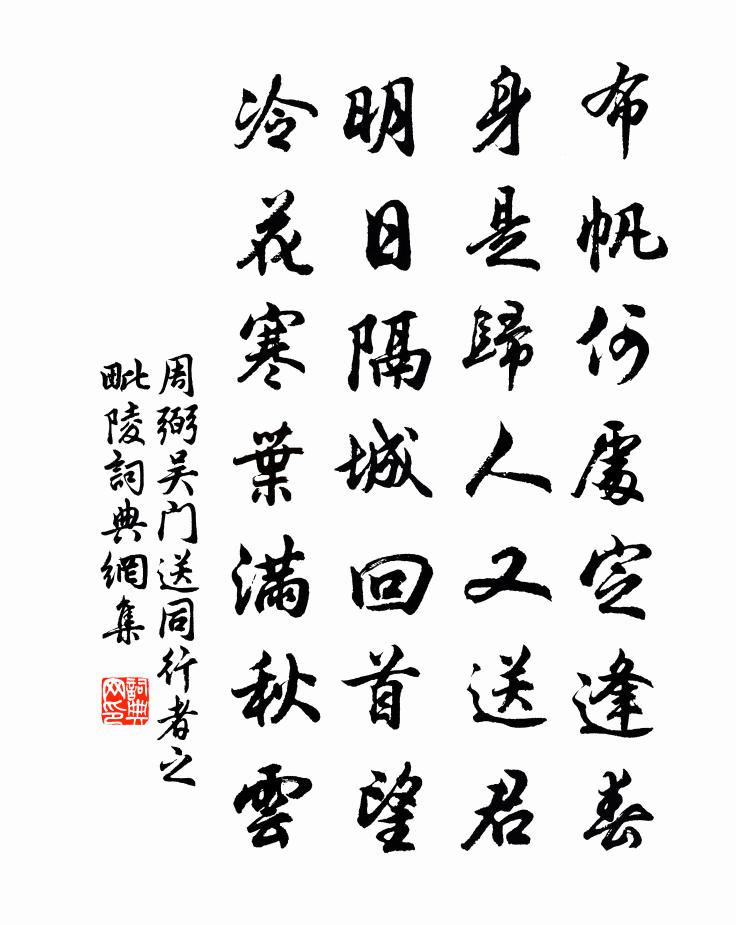 布帆何處定逢春
身是歸人又送君
明日隔城回首望
冷花寒葉滿秋雲
周弼吴门送同行者之
毗陵詞典網集
詞典网印